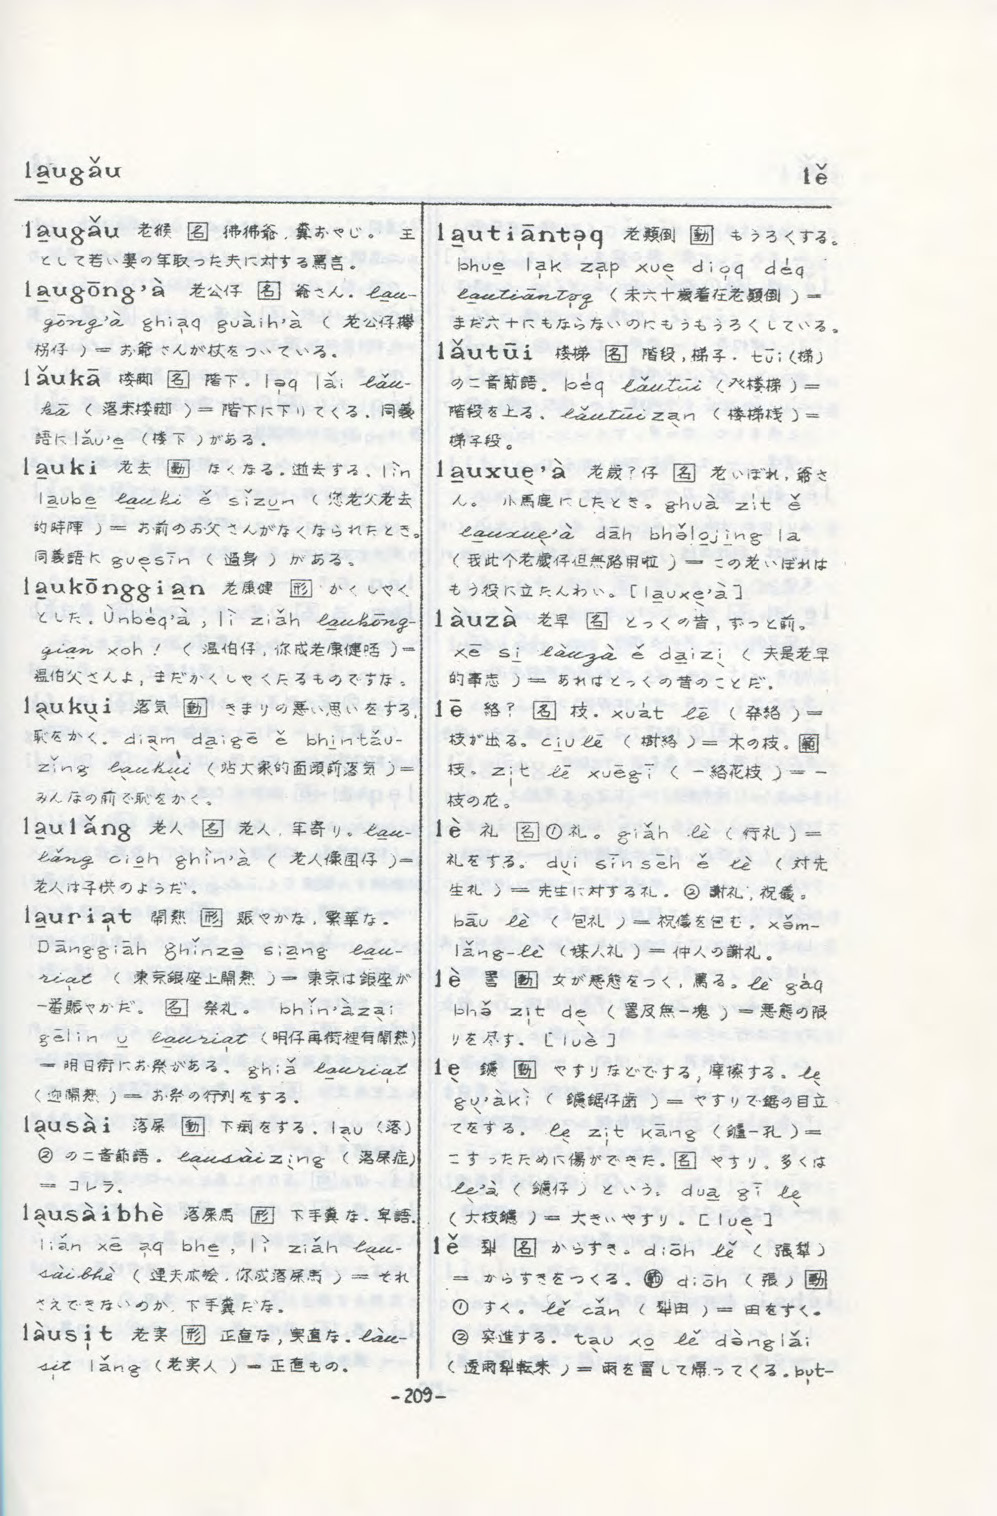 la̱ugǎu
lě
la̱ugǎu 老猴 名 狒狒爺,糞おやじ。主
として若い妻の年取った夫に対する罵言。
la̱ugōng'à 老公仔 名 爺さん. la̱u-
gōng'à ghiạq guàih'à ( 老公仔攑
柺仔 ) = お爺さんが杖をついている。
lǎukā 楼脚 名 階下. lə̣q lǎi lǎu-
kā ( 落来楼脚 ) = 階下に下りてくる. 同義
語に lǎu'e̱ (楼下)がある。
la̱uki 老去 動 なくなる. 逝去する. līn
la̱ube̱ la̱uki ě sǐzu̱n ( 您老父老去
的時陣 ) = お前のお父さんがなくなられたとき。
同義語に gue̱sīn ( 過身 ) がある。
la̱ukōnggia̱n 老康健 形 かくしゃく
とした. Ūnbéq'à, lì ziǎh la̱ukōng-
gia̱n xoh! ( 温伯仔,你成老康健 )=
温伯父さんよ, まだかくしゃくたるものですな。
la̱ukụi 落気 動 きまりの悪い思いをする,
恥をかく. diạm da̱igē ě bhi̱ntǎu-
zǐng la̱ukụi (站大家的面頭前落気)=
みんなの前で恥をかく。
la̱ulǎng 老人 名 老人, 年寄り。la̱u-
lǎng ciọh ghìn'à ( 老人像囡仔 )=
老人は子供のようだ.
la̱uriạt 鬧熱 形 賑やかな, 繁華な.
Dānggiāh Ghǐnzə̱ sia̱ng la̱u-
riạt ( 東京銀座上鬧熱 ) = 東京は銀座が
一番賑やかだ。 名 祭礼。 bhǐn'àzại
gēlìn u̱ la̱uriạt (明仔再街裡有鬧熱)
= 明日街にお祭がある. ghiǎ la̱uriạt
(迎鬧熱 ) = お祭の行列をする.
lạusài 落屎 動 下痢をする. lạu (落)
② の二音節語. lạusàizịng ( 落屎症)
= コレラ.
lạusàibhè 落屎馬 形 下手糞な. 卑語.
liǎn xē ạq bhe̱, lì ziǎh lạu-
sàibhè ( 連夫亦 , 你成落屎馬 ) = それ
さえできないのか, 下手糞だな。
làusịt 老実 形 正直な, 実直な. làu-
sịt lǎng (老実人 ) = 正直もの.
la̱utiāntə̣q 老顛倒 動 もうろくする。
bhue̱ lạk zạp xuẹ diọq déq
la̱utiāntə̣q ( 未六十歳着在老顛倒 ) =
まだ六十にもならないのにもうもうろくしている。
lǎutūi 楼梯 名 階段, 梯子. tūi(梯)
の二音節語. béq lǎutūi ( 楼梯 ) =
階段を上る. lǎutūiza̱n ( 楼梯桟 ) =
梯子段。
la̱uxuẹ'à 老歳?仔 名 老いぼれ, 爺さ
ん。 小馬鹿にしたとき。ghuà zit ě
la̱uxuẹ'à dāh bhəlojing la
( 我此个老歳仔但無路用啦 ) = この老いぼれは
もう役に立たんわい。[la̱uxẹ'à]
làuzà 老早 名 とっくの昔, ずっと前。
xē si̱ làuzà ě da̱izị ( 夫是老早
的事志 ) = あれはとっくの昔のことだ.
lē 絡? 名 枝. xuát lē ( 発絡 ) =
枝が出る。ciu̱lē ( 樹絡 ) = 木の枝。範
枝. zịt lē xuēgī ( 一絡花枝 ) = 一
枝の花。
lè 礼 名 ① 礼。giǎh lè ( 行礼 ) =
礼をする. dụi sīnsēh ě lè ( 対先
生礼 ) = 先生に対する礼. ② 謝礼; 祝儀。
bāu lè ( 包礼 ) = 祝儀を包む. xǒm-
lǎng-lè (媒人礼 ) = 仲人の謝礼。
lè 詈 動 女が悪態をつく, 罵る. lè gáq
bhə̌ zịt dẹ ( 詈及無一塊 ) = 悪態の限
りを尽す. [luè]
lẹ 鑢 動 やすりなどでする, 摩擦する. lẹ
gụ'àkì ( 鑢鋸仔歯 ) = やすりで鋸の目立
てをする. lẹ zịt kāng (鑢一孔) =
こすったために傷ができた. 名 やすり. 多くは
lẹ'à ( 鑢仔 ) という。dua̱ gī lẹ
(大枝鑢 ) = 大きいやすり。[luẹ]
lě 犁 名 からすき。diōh lě ( 張犁 )
= からすきをつくる。動 diōh (張) 動
① すく。lě cǎn ( 犁田 ) = 田をすく。
② 突進する. tạu xo̱ lě də̀nglǎi
( 透雨犁転来 ) = 雨を冒して帰ってくる. bụt-
-209-